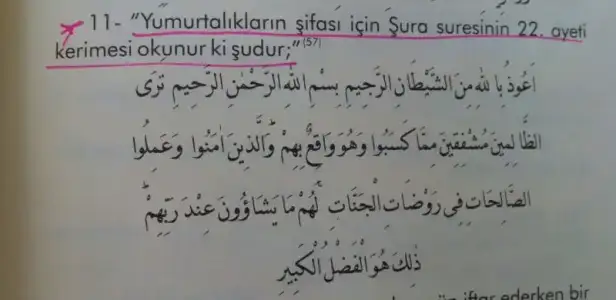 11- "Yumurtalıkların şifası için Şura suresinin 22. ayeti
kerimesi okunur ki şudur;"(57)
اَعُوذُ بِا للّٰهِ مِنَ الشَّيْطَانِ الرَّجِيمِ بِسْمِ اللّٰهِ الرَّحْمٰنِ الرَّحِيمِ تَرَى
الظَّالِمِينَ مُشْفِقِينَ مِمَّا كَسَبُوا وَهُوَ وَاقِعٌ بِهِمْ وَالَّذِينَ اٰمَنُوا وَعَمِلُوا
الصَّالِحَاتِ فِى رَوْضَاتِ الْجَنَّاتِ لَهُمْ مَا يَشَاؤُونَ عِنْدَ رَبِّهِمْ
ذٰلِكَ هُوَ الْفَضْلُ الْكَبِيرُ
iftar ederken bir